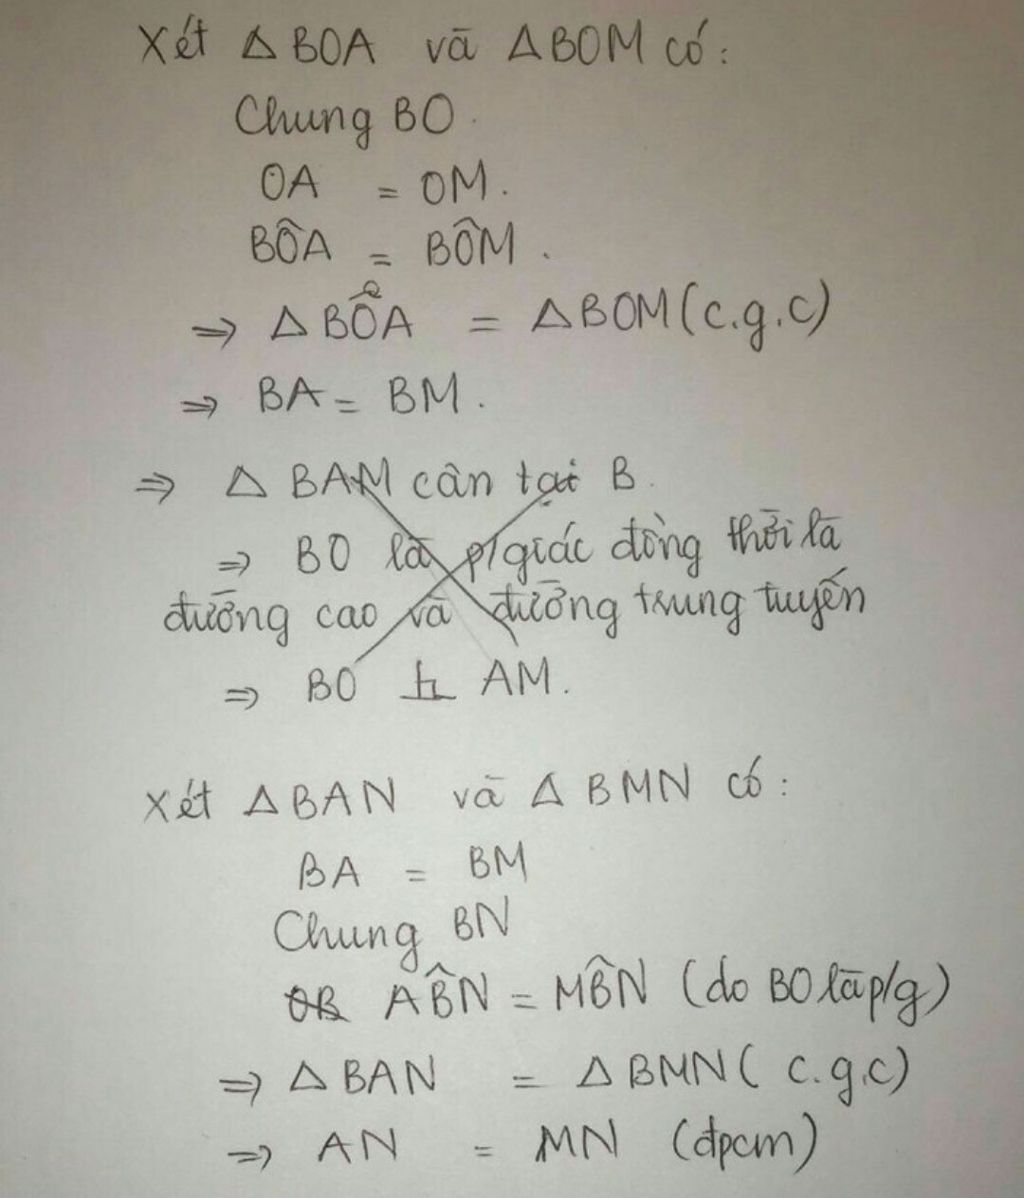 Xét △ BOA và △ BOM có:
Chung BO.
OA = OM.
BÔA = BÔM.
⇒ △ BỔA = △ BOM (c.g.c)
⇒ BA = BM.
⇒ △ BAM cân tại B.
⇒ BO là p/giác đồng thời là
đường cao và đường trung tuyến
⇒ BO ⊥ AM.
Xét △ BAN và △ BMN có:
BA = BM
Chung BN
OB AB̂N = MB̂N (do BO là p/g)
⇒ △ BAN = △ BMN ( c.g.c)
⇒ AN = MN (đpcm)